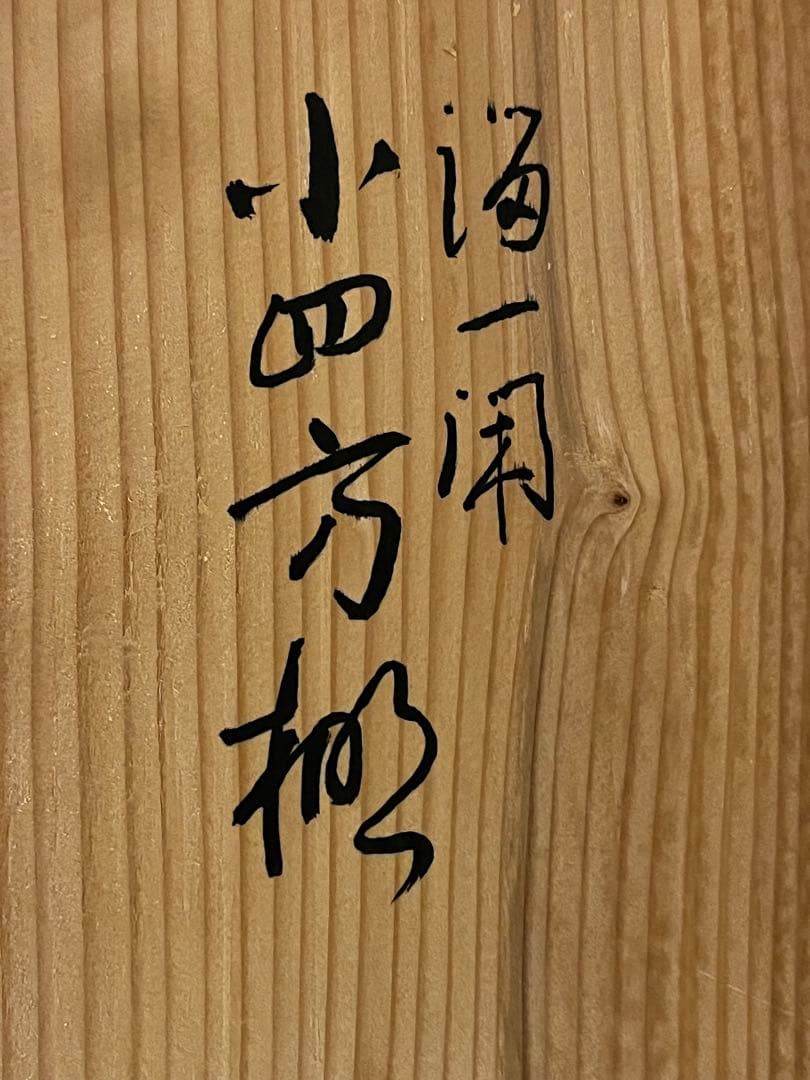 溜一閑
小四方棚